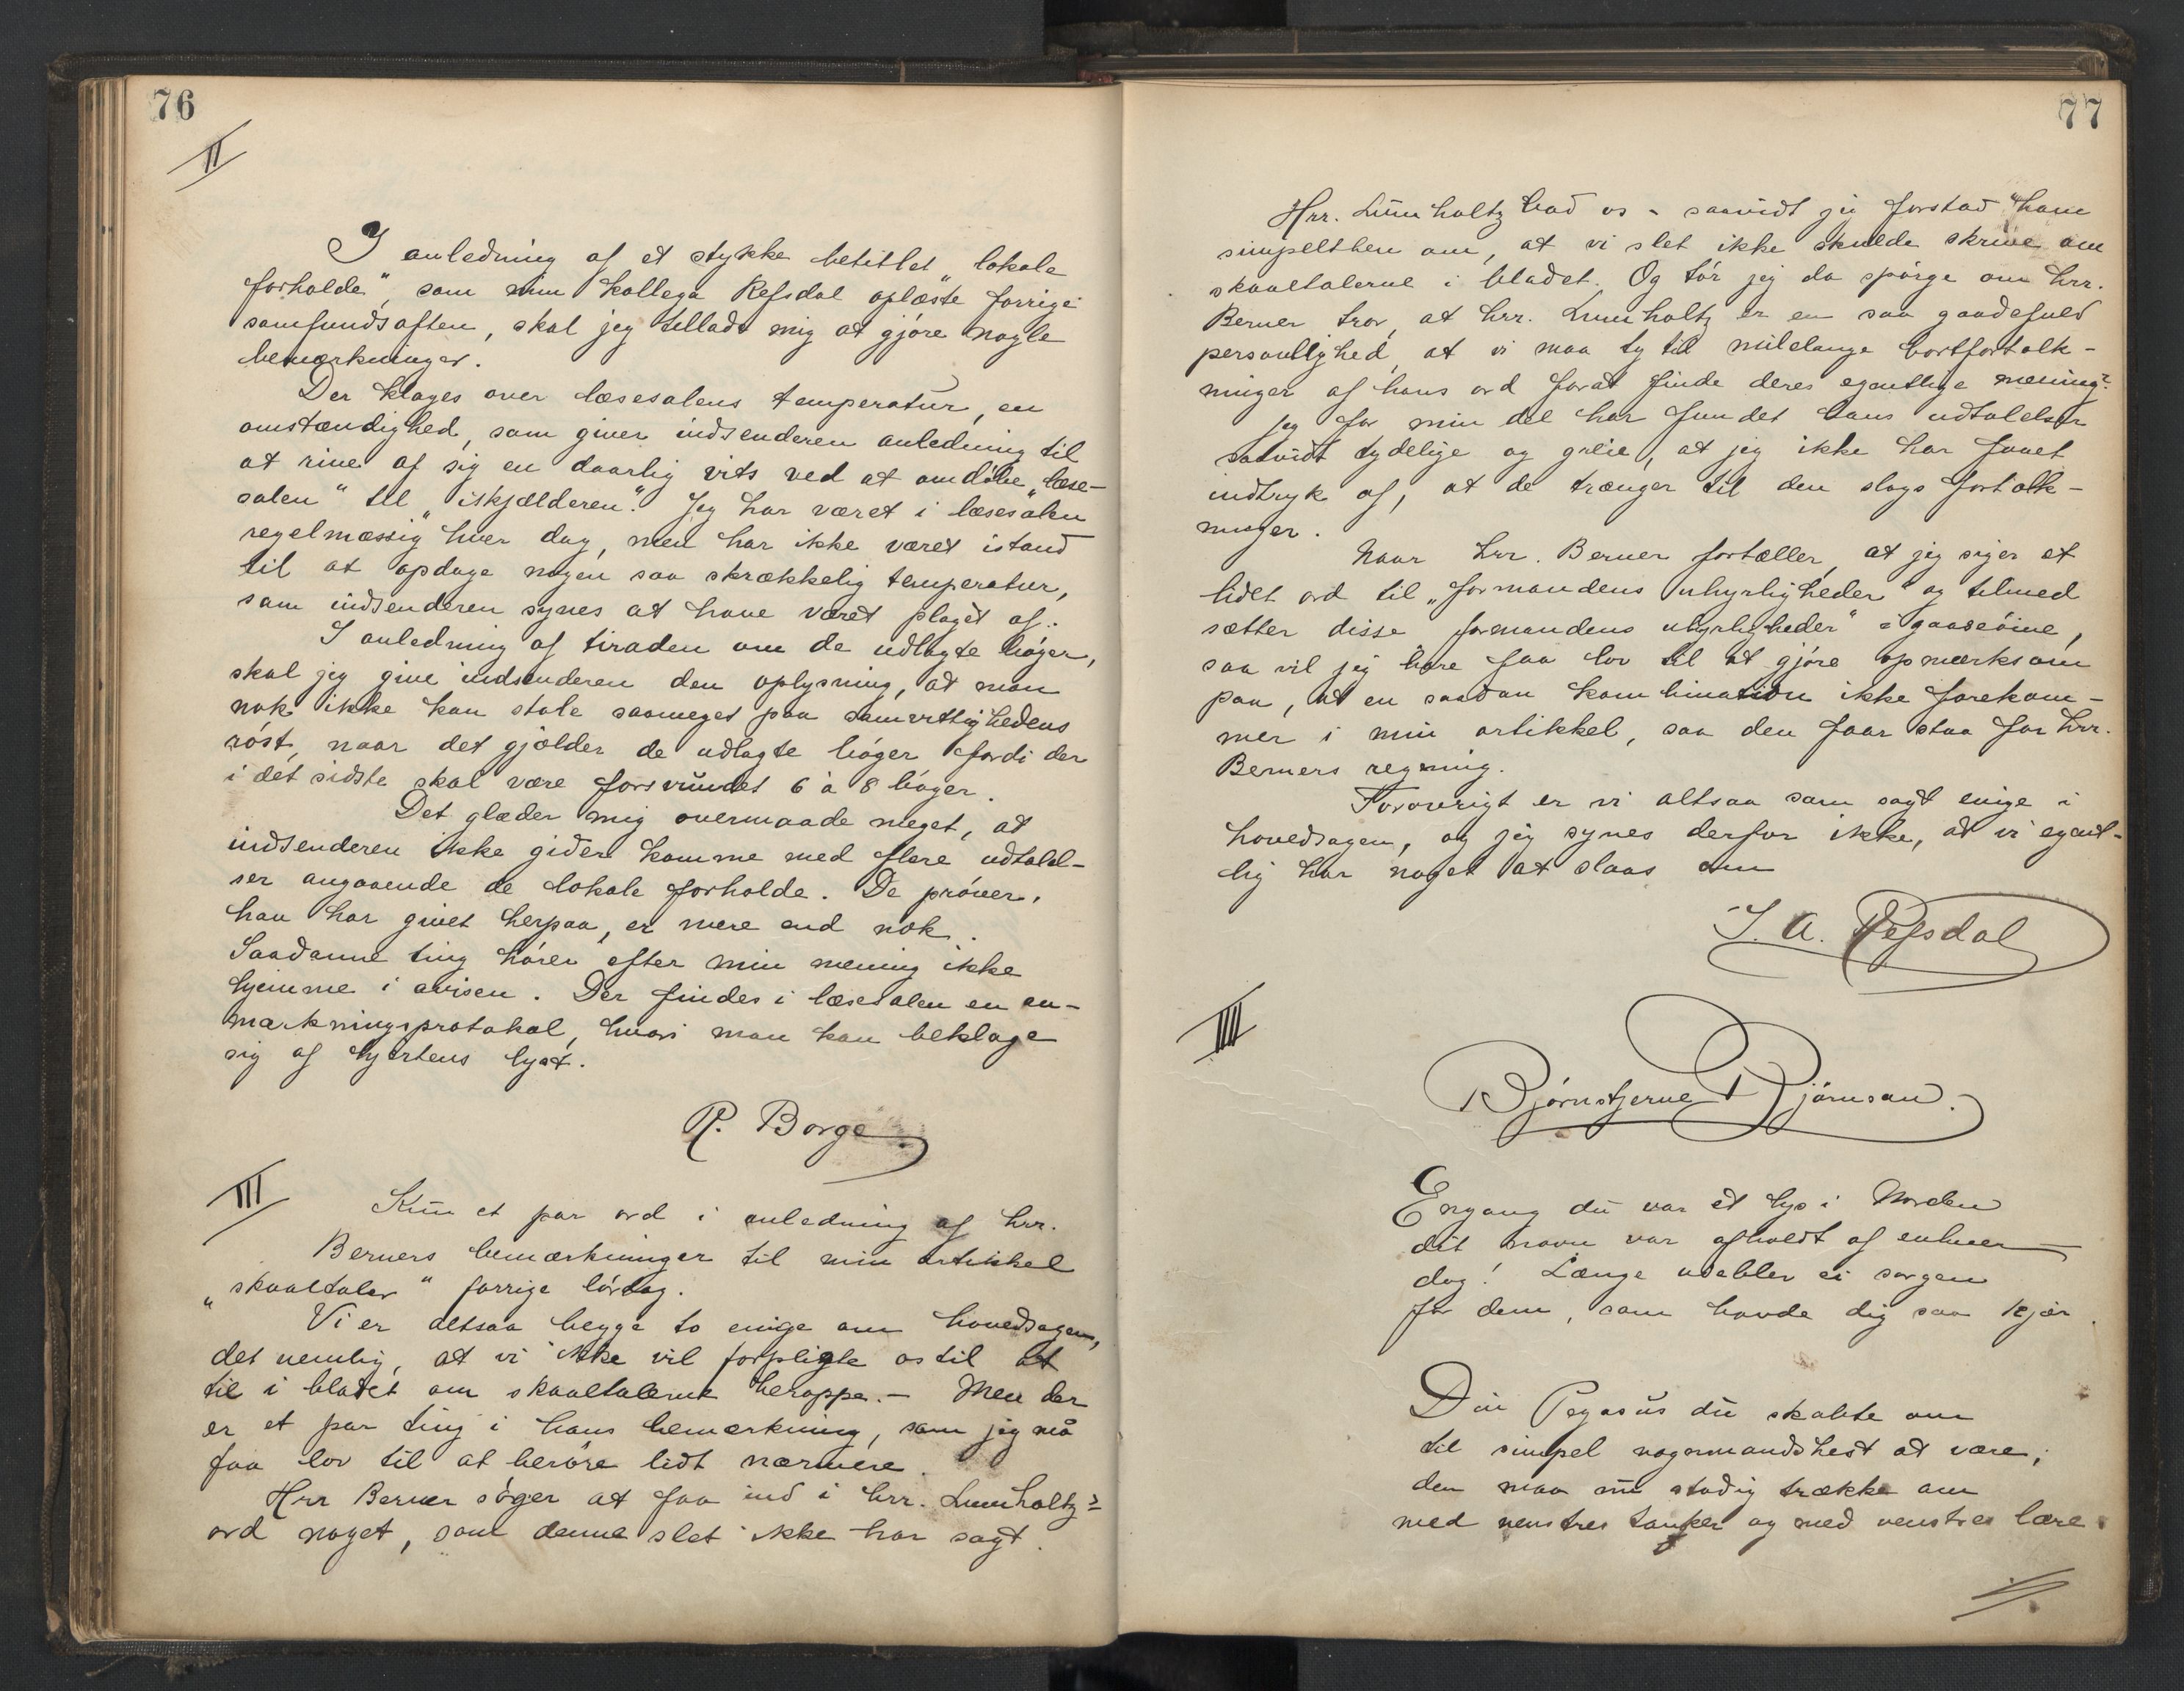 76
II
I anledning af et stykke betitlet „lokale
forholde", som min kollega Refsdal oplæste forrige
samfundsaften, skal jeg tillade mig at gjöre nogle
bemærkninger.
Der klages over læsesalens temperatur, en
omstændighed, som giver indsenderen anledning til
at rive af sig en daarlig vits ved at omdöbe „læse-
salen" til „iskjælderen". Jeg har været i læsesalen
regelmæssig hver dag, men har ikke været istand
til at opdage nogen saa skrækkelig temperatur,
som indsenderen synes at have været plaget af.
I anledning af tiraden om de udlagte böger,
skal jeg give indsenderen den oplysning, at man
nok ikke kan stole saameget paa samvittighedens
röst, naar det gjælder de udlagte böger fordi der
i det sidste skal være forsvundet 6 à 8 böger.
Det glæder mig overmaade meget, at
indsenderen ikke gider komme med flere udtalel-
ser angaaende de lokale forholde. De pröver,
han har givet herpaa, er mere end nok.
Saadanne ting hörer efter min mening ikke
hjemme i avisen. Der findes i læsesalen en an-
markningsprotokol, hvori man kan beklage
sig af hjertens lyst.
R. Borge
III
Kun et par ord i anledning af hrr.
Berners bemærkninger til min artikkel
„skaaltaler" forrige lördag.
Vi er altsaa begge to enige om hovedsagen,
det nemlig, at vi ikke vil forpligte os til at
til i bladet om skaaltalerne heroppe. — Men der
er et par ting i hans bemærkning, som jeg må
faa lov til at beröre lidt nærmere.
Hrr Berner söger at faa ind i hrr. Lumholtz's
ord noget, som denne slet ikke har sagt.
77
Hrr. Lumholtz bad os - saavidt jeg forstod ham
simpelthen om, at vi slet ikke skulde skrive om
skaaltalerne i bladet. Og tör jeg da spörge om hrr.
Berner tror, at hrr. Lumholtz er en saa gaadefuld
personlighed, at vi maa ty til milelange bortfortolk-
ninger af hans ord forat finde deres egentlige mening?
jeg for min del har fundet hans udtalelser
saavidt tydelige og greie, at jeg ikke har faaet
indtryk af, at de trænger til den slags fortolk-
ninger.
Naar hrr. Berner fortæller, at jeg siger et
lidet ord til „formandens uhyrligheder" og tilmed
sætter disse „formandens uhyrligheder" i gaaseöine,
saa vil jeg bare faa lov til at gjöre opmærksom
paa, at en saadan kombination ikke forekom-
mer i min artikkel, saa den faar staa for hrr.
Berners regning.
Foröverigt er vi altsaa som sagt enige i
hovedsagen, og jeg synes derfor ikke, at vi egent-
lig har noget at slaas om
J. A. Refsdal
IIII
Björnstjerne Björnson.
Engang du var et lys i Norden
dit navn var afholdt af enhver —
dog! Længe udebler ei sorgen
for dem, som havde dig saa kjær.
Din Pegasus du skabte om
til simpel vognmandshest at være;
den maa nu stadig trække om
med venstres tanker og med venstres lære.